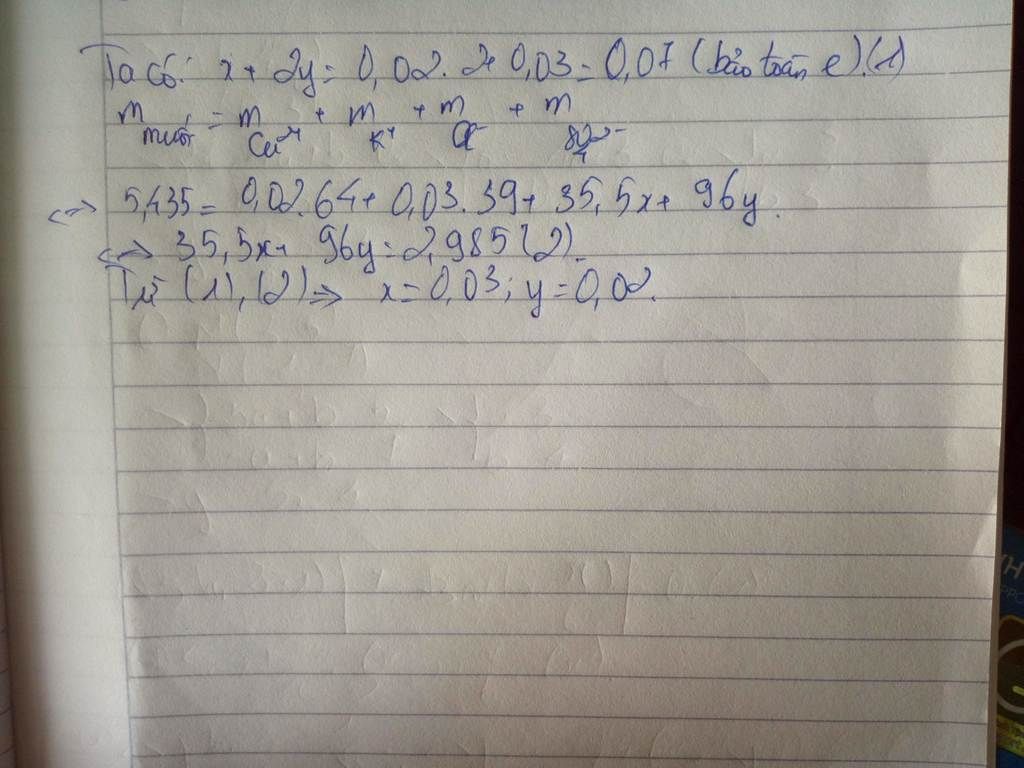 Ta có: x + 2y = 0,02.2+0,03 = 0,07 (bảo toàn e).(1)
m muối = m Cu²⁺ + m K⁺ + m Cl⁻ + m SO₄²⁻
<=> 5,435 = 0,02.64+ 0,03.39+ 35,5x+ 96y.
<=> 35,5x+ 96y=2,985 (2).
Từ (1), (2) => x=0,03; y=0,02.